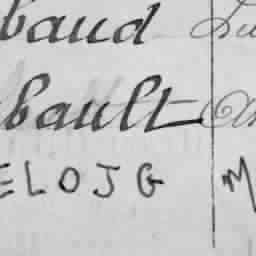 baud Lu
bault
ELOJG M